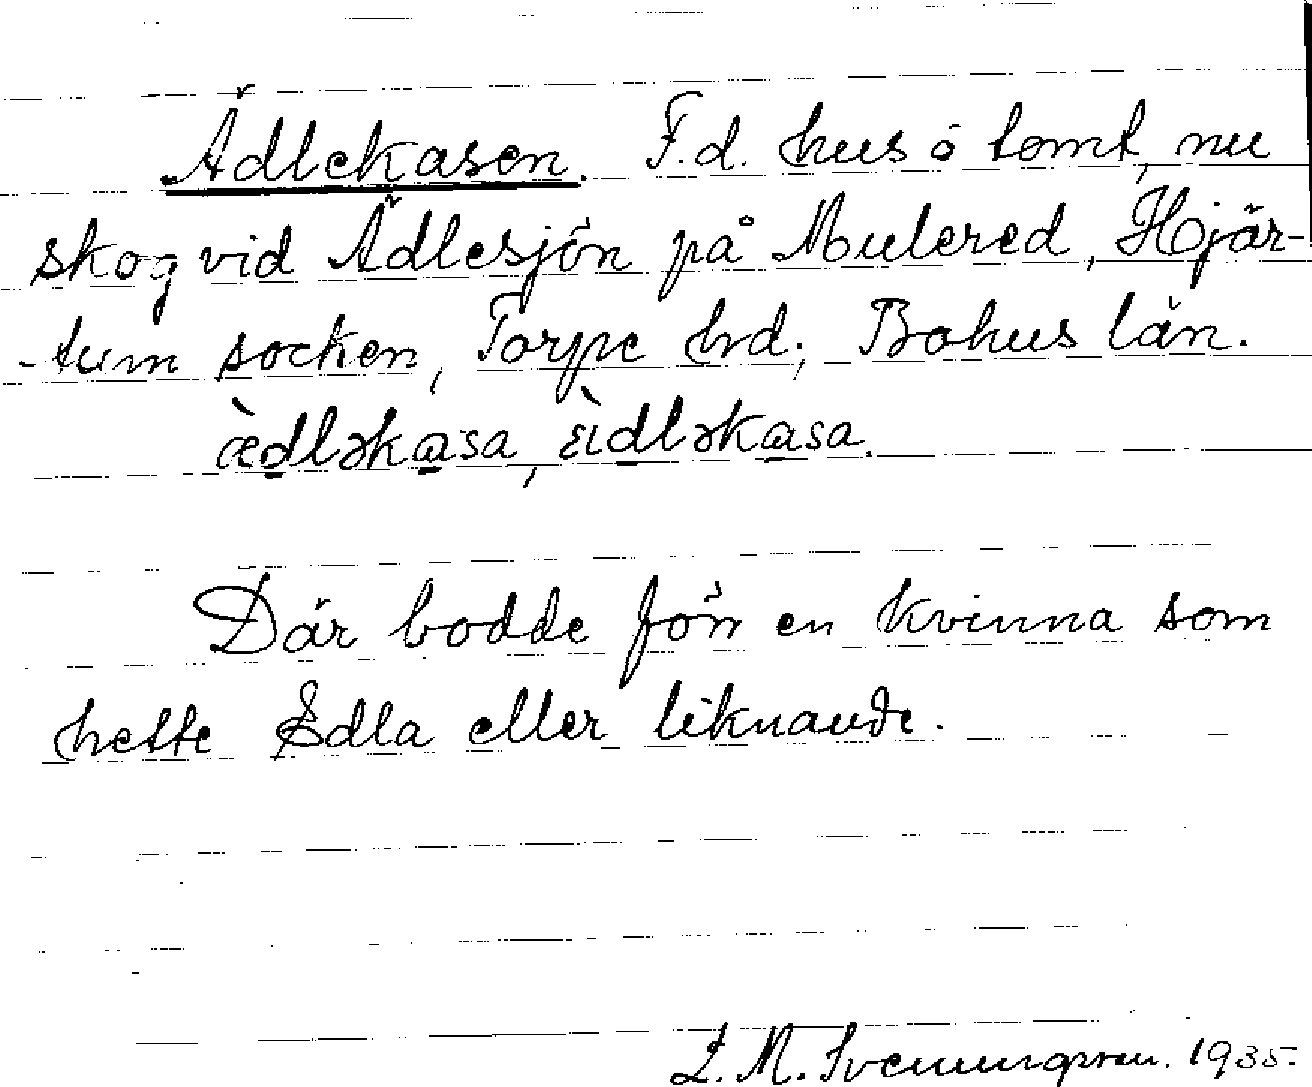 Ädlekasen. F.d. hus o tomt, nu
skog vid Ädlesjön på Mulered, Hjär-
-tum socken, Torpe hrd; Bohus län.
æ̀dləkasa, ɛ̀idləkasa.
Där bodde förr en kvinna som
hette Edla eller liknande.
L. M. Svenungsson. 1935.